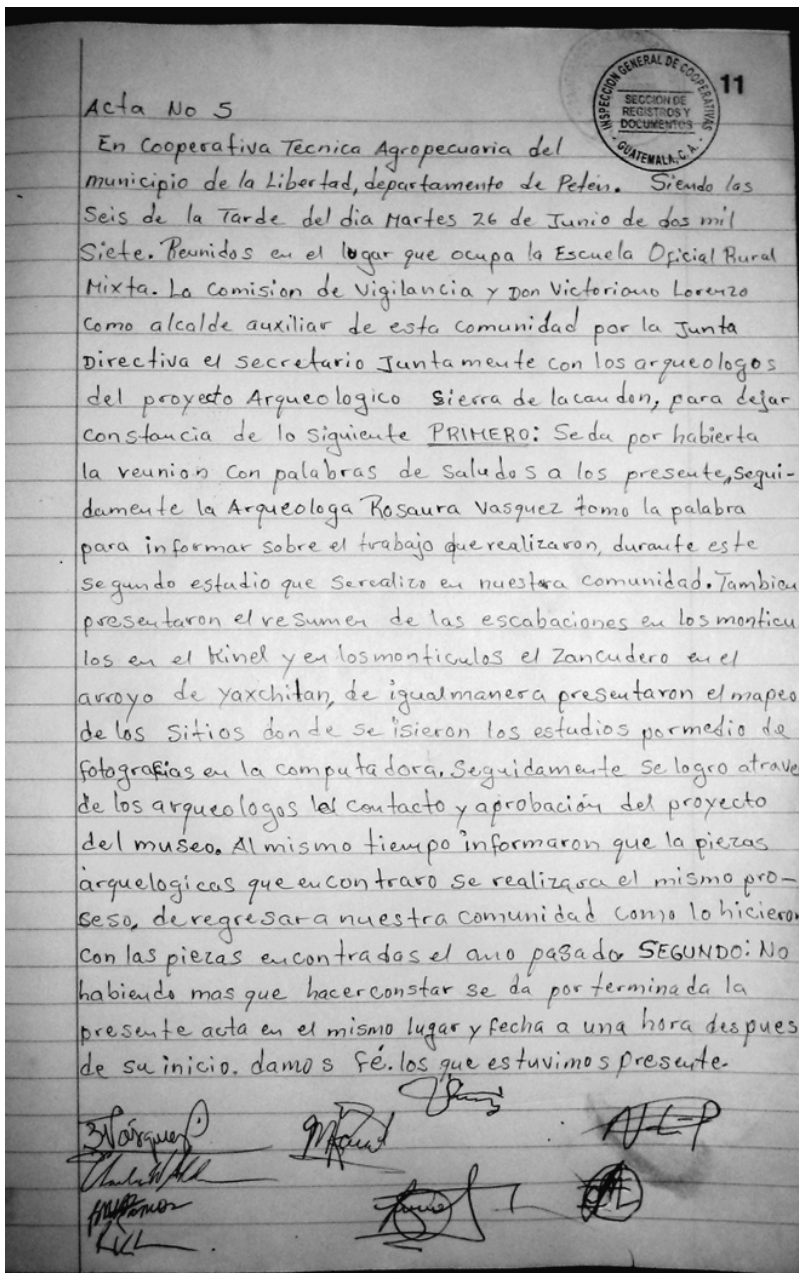 INSPECCIÓN GENERAL DE COOPERATIVAS
SECCION DE
REGISTROS Y
DOCUMENTOS
GUATEMALA, C. A.
11
Acta No 5
En Cooperativa Tecnica Agropecuaria del
municipio de la Libertad, departamento de Petén. Siendo las
Seis de la Tarde del dia Martes 26 de Junio de dos mil
Siete. Reunidos en el lugar que ocupa la Escuela Oficial Rural
Mixta. La Comision de Vigilancia y Don Victoriano Lorenzo
Como alcalde auxiliar de esta comunidad por la Junta
Directiva el secretario Juntamente con los arqueologos
del proyecto Arqueologico Sierra de lacandon, para dejar
constancia de lo siguiente PRIMERO: Se da por habierta
la reunion con palabras de saludos a los presente, segui-
damente la Arqueologa Rosaura Vasquez tomo la palabra
para informar sobre el trabajo que realizaron, durante este
segundo estudio que serealizo en nuestra comunidad. Tambien
presentaron el resumen de las escabaciones en los monticu
los en el Kinel y en los monticulos el Zancudero en el
arroyo de yaxchilan, de igualmanera presentaron el mapeo
de los Sitios donde se isieron los estudios pormedio de
fotografias en la computadora. Seguidamente se logro atrave
de los arqueologos el contacto y aprobación del proyecto
del museo. Al mismo tiempo informaron que la piezas
arquelogicas que encontraro se realizara el mismo pro-
seso, de regresar a nuestra comunidad como lo hicieron
con las piezas encontradas el ano pasado. SEGUNDO: No
habiendo mas que hacer constar se da por terminada la
presente acta en el mismo lugar y fecha a una hora despues
de su inicio. damos fé. los que estuvimos presente.